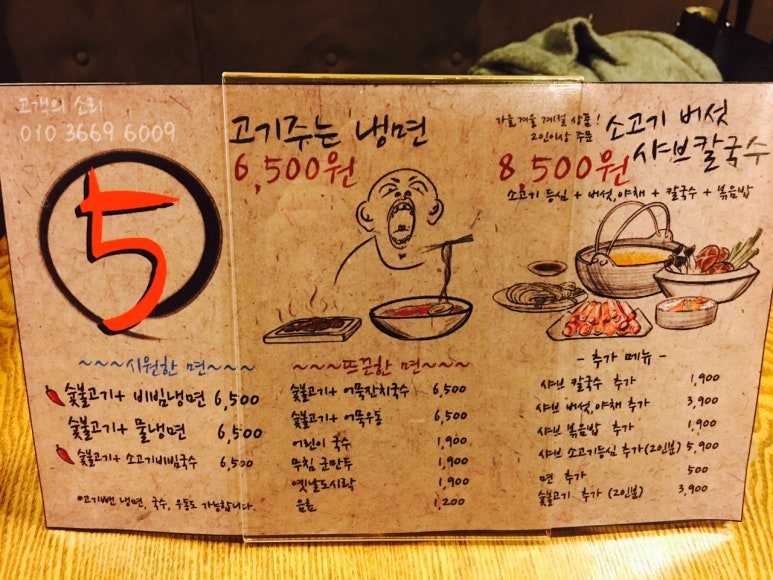 고객의 소리
010 3669 6009
5
~~~시원한 면~~~
숯불고기+ 비빔냉면 6,500
숯불고기+ 물냉면 6,500
숯불고기+ 소고기비빔국수 6,500
고기뺀 냉면, 국수, 우동도 가능합니다.
고기주는 냉면
6,500원
~~~뜨끈한 면~~~
숯불고기+ 어묵잔치국수 6,500
숯불고기+ 어묵우동 6,500
어린이 국수 1,900
무침 군만두 1,900
옛날도시락 1,900
음료 1,200
가을겨울 계절 상품!
2인이상 주문
소고기 버섯
샤브칼국수
8,500원
소고기 등심 + 버섯,야채 + 칼국수 + 볶음밥
- 추가 메뉴 -
샤브 칼국수 추가 1,900
샤브 버섯,야채 추가 3,900
샤브 볶음밥 추가 1,900
샤브 소고기등심 추가(2인분) 5,900
면 추가 500
숯불고기 추가 (2인분) 3,900